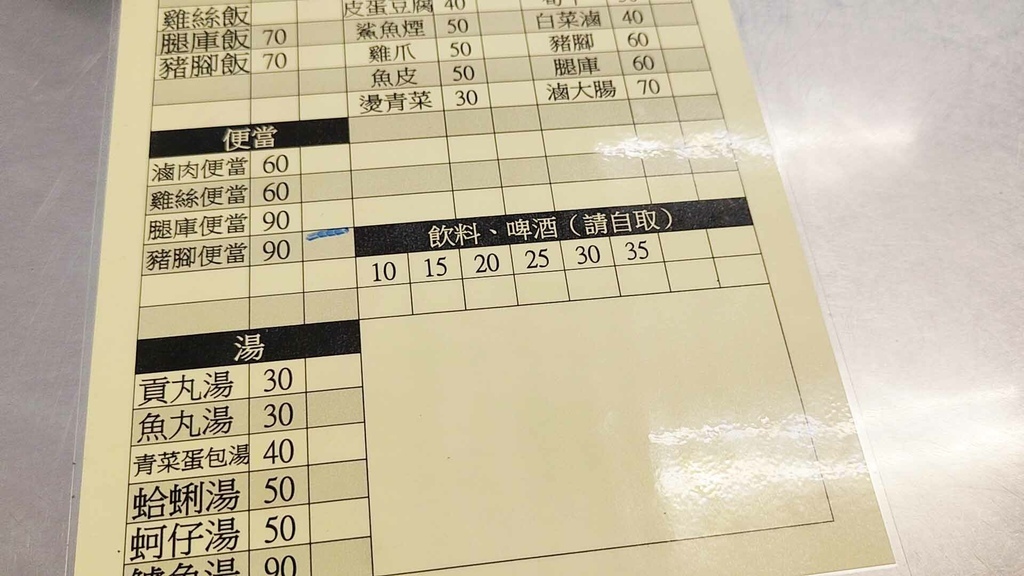 雞絲飯
腿庫飯 70
豬腳飯 70
皮蛋豆腐 40
鯊魚煙 50
雞爪 50
魚皮 50
燙青菜 30
白菜滷 40
豬腳 60
腿庫 60
滷大腸 70
便當
滷肉便當 60
雞絲便當 60
腿庫便當 90
豬腳便當 90
飲料、啤酒（請自取）
10 15 20 25 30 35
湯
貢丸湯 30
魚丸湯 30
青菜蛋包湯 40
蛤蜊湯 50
蚵仔湯 50
魚湯 90